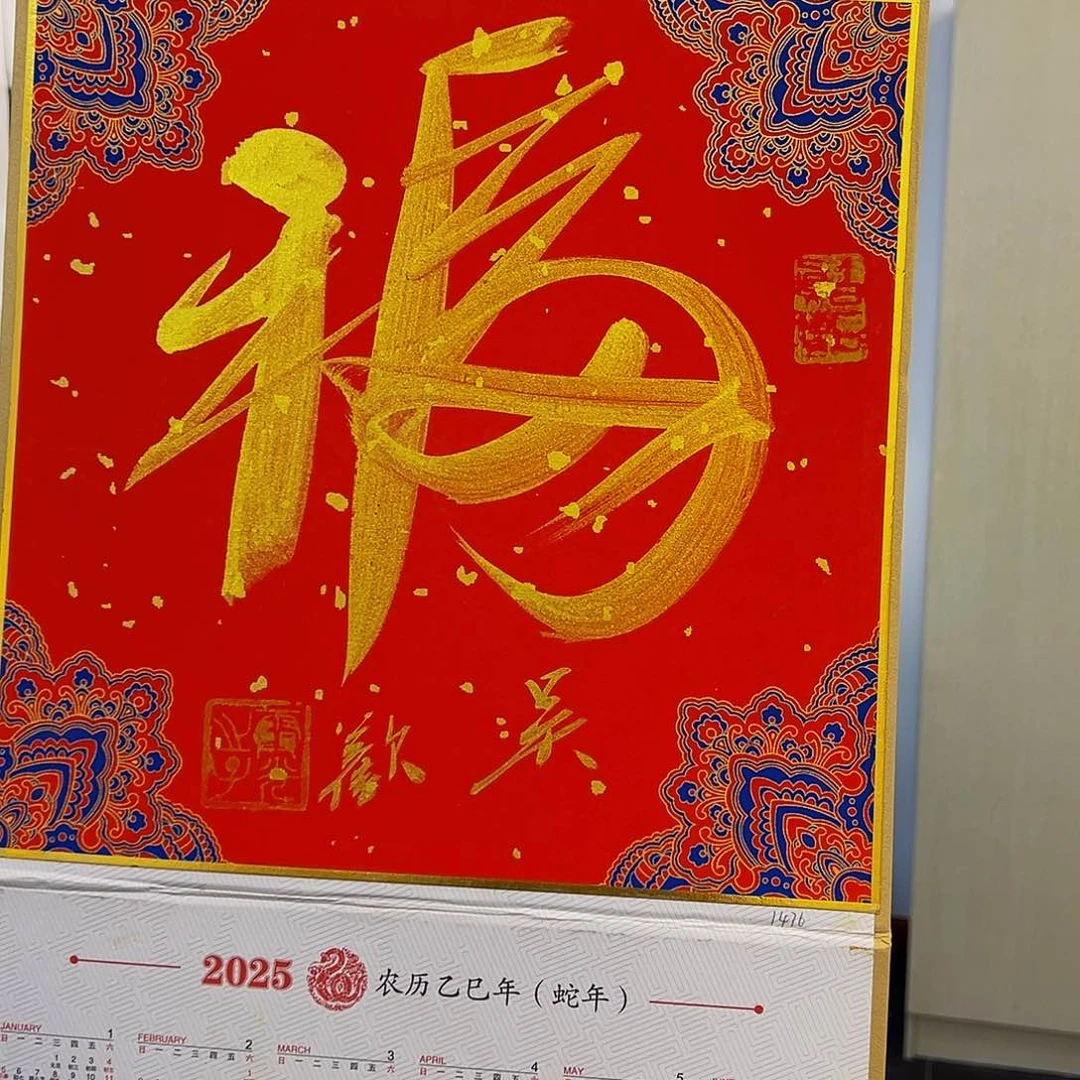 福
吴
欢
1476
2025 农历乙巳年（蛇年）
JANUARY 1
日 一 二 三 四 五 六
FEBRUARY 2
日 一 二 三 四 五 六
MARCH 3
日 一 二 三 四 五 六
APRIL 4
日 一 二 三 四 五 六
MAY 5
1 2 3 4
5 6 7 8 9 10 11
1